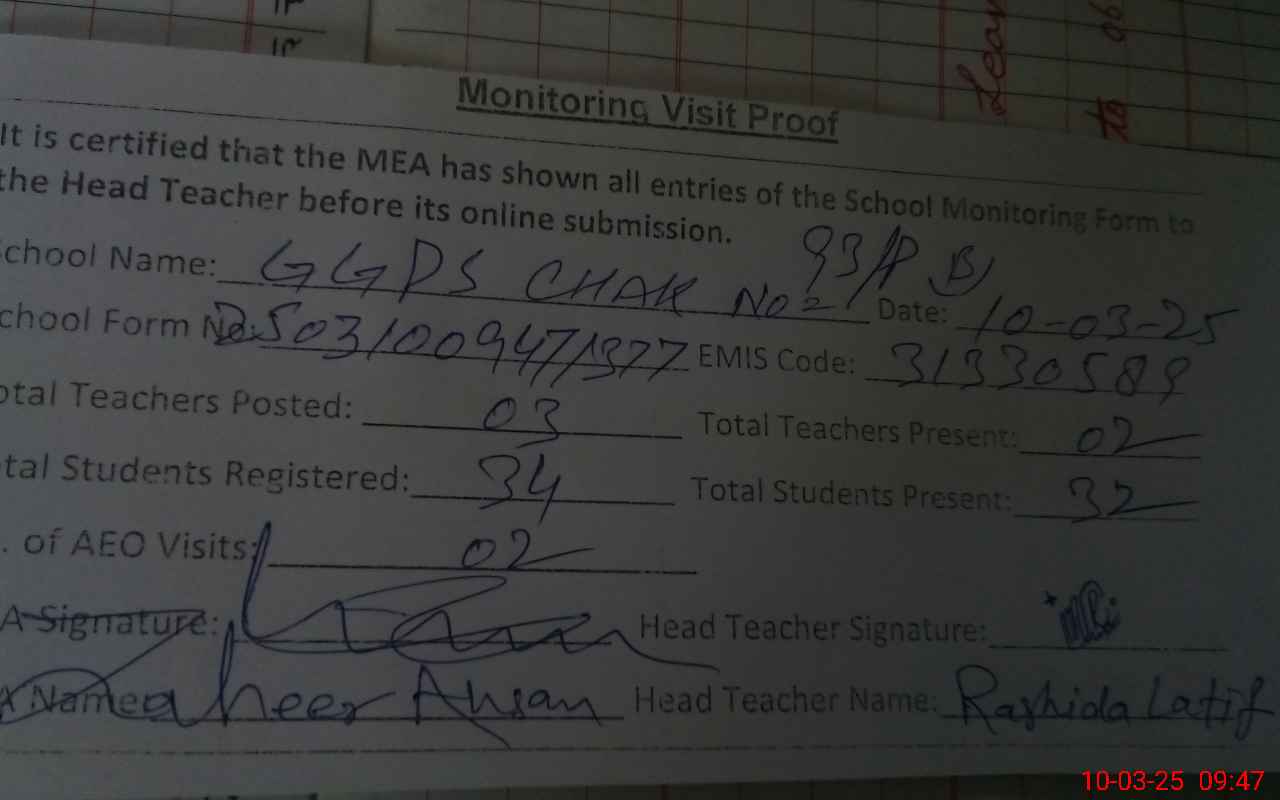 Lear
to 06
Monitoring Visit Proof
It is certified that the MEA has shown all entries of the School Monitoring Form to
the Head Teacher before its online submission.
chool Name: GGPS CHAK No= 93/P B Date: 10-03-25
chool Form No: EMIS Code: 31330589
otal Teachers Posted: 03 Total Teachers Present: 02
tal Students Registered: 34 Total Students Present: 32
. of AEO Visits: 02
A Signature: Head Teacher Signature:
A Name Aheer Ahsan Head Teacher Name: Rashida Latif
10-03-25 09:47